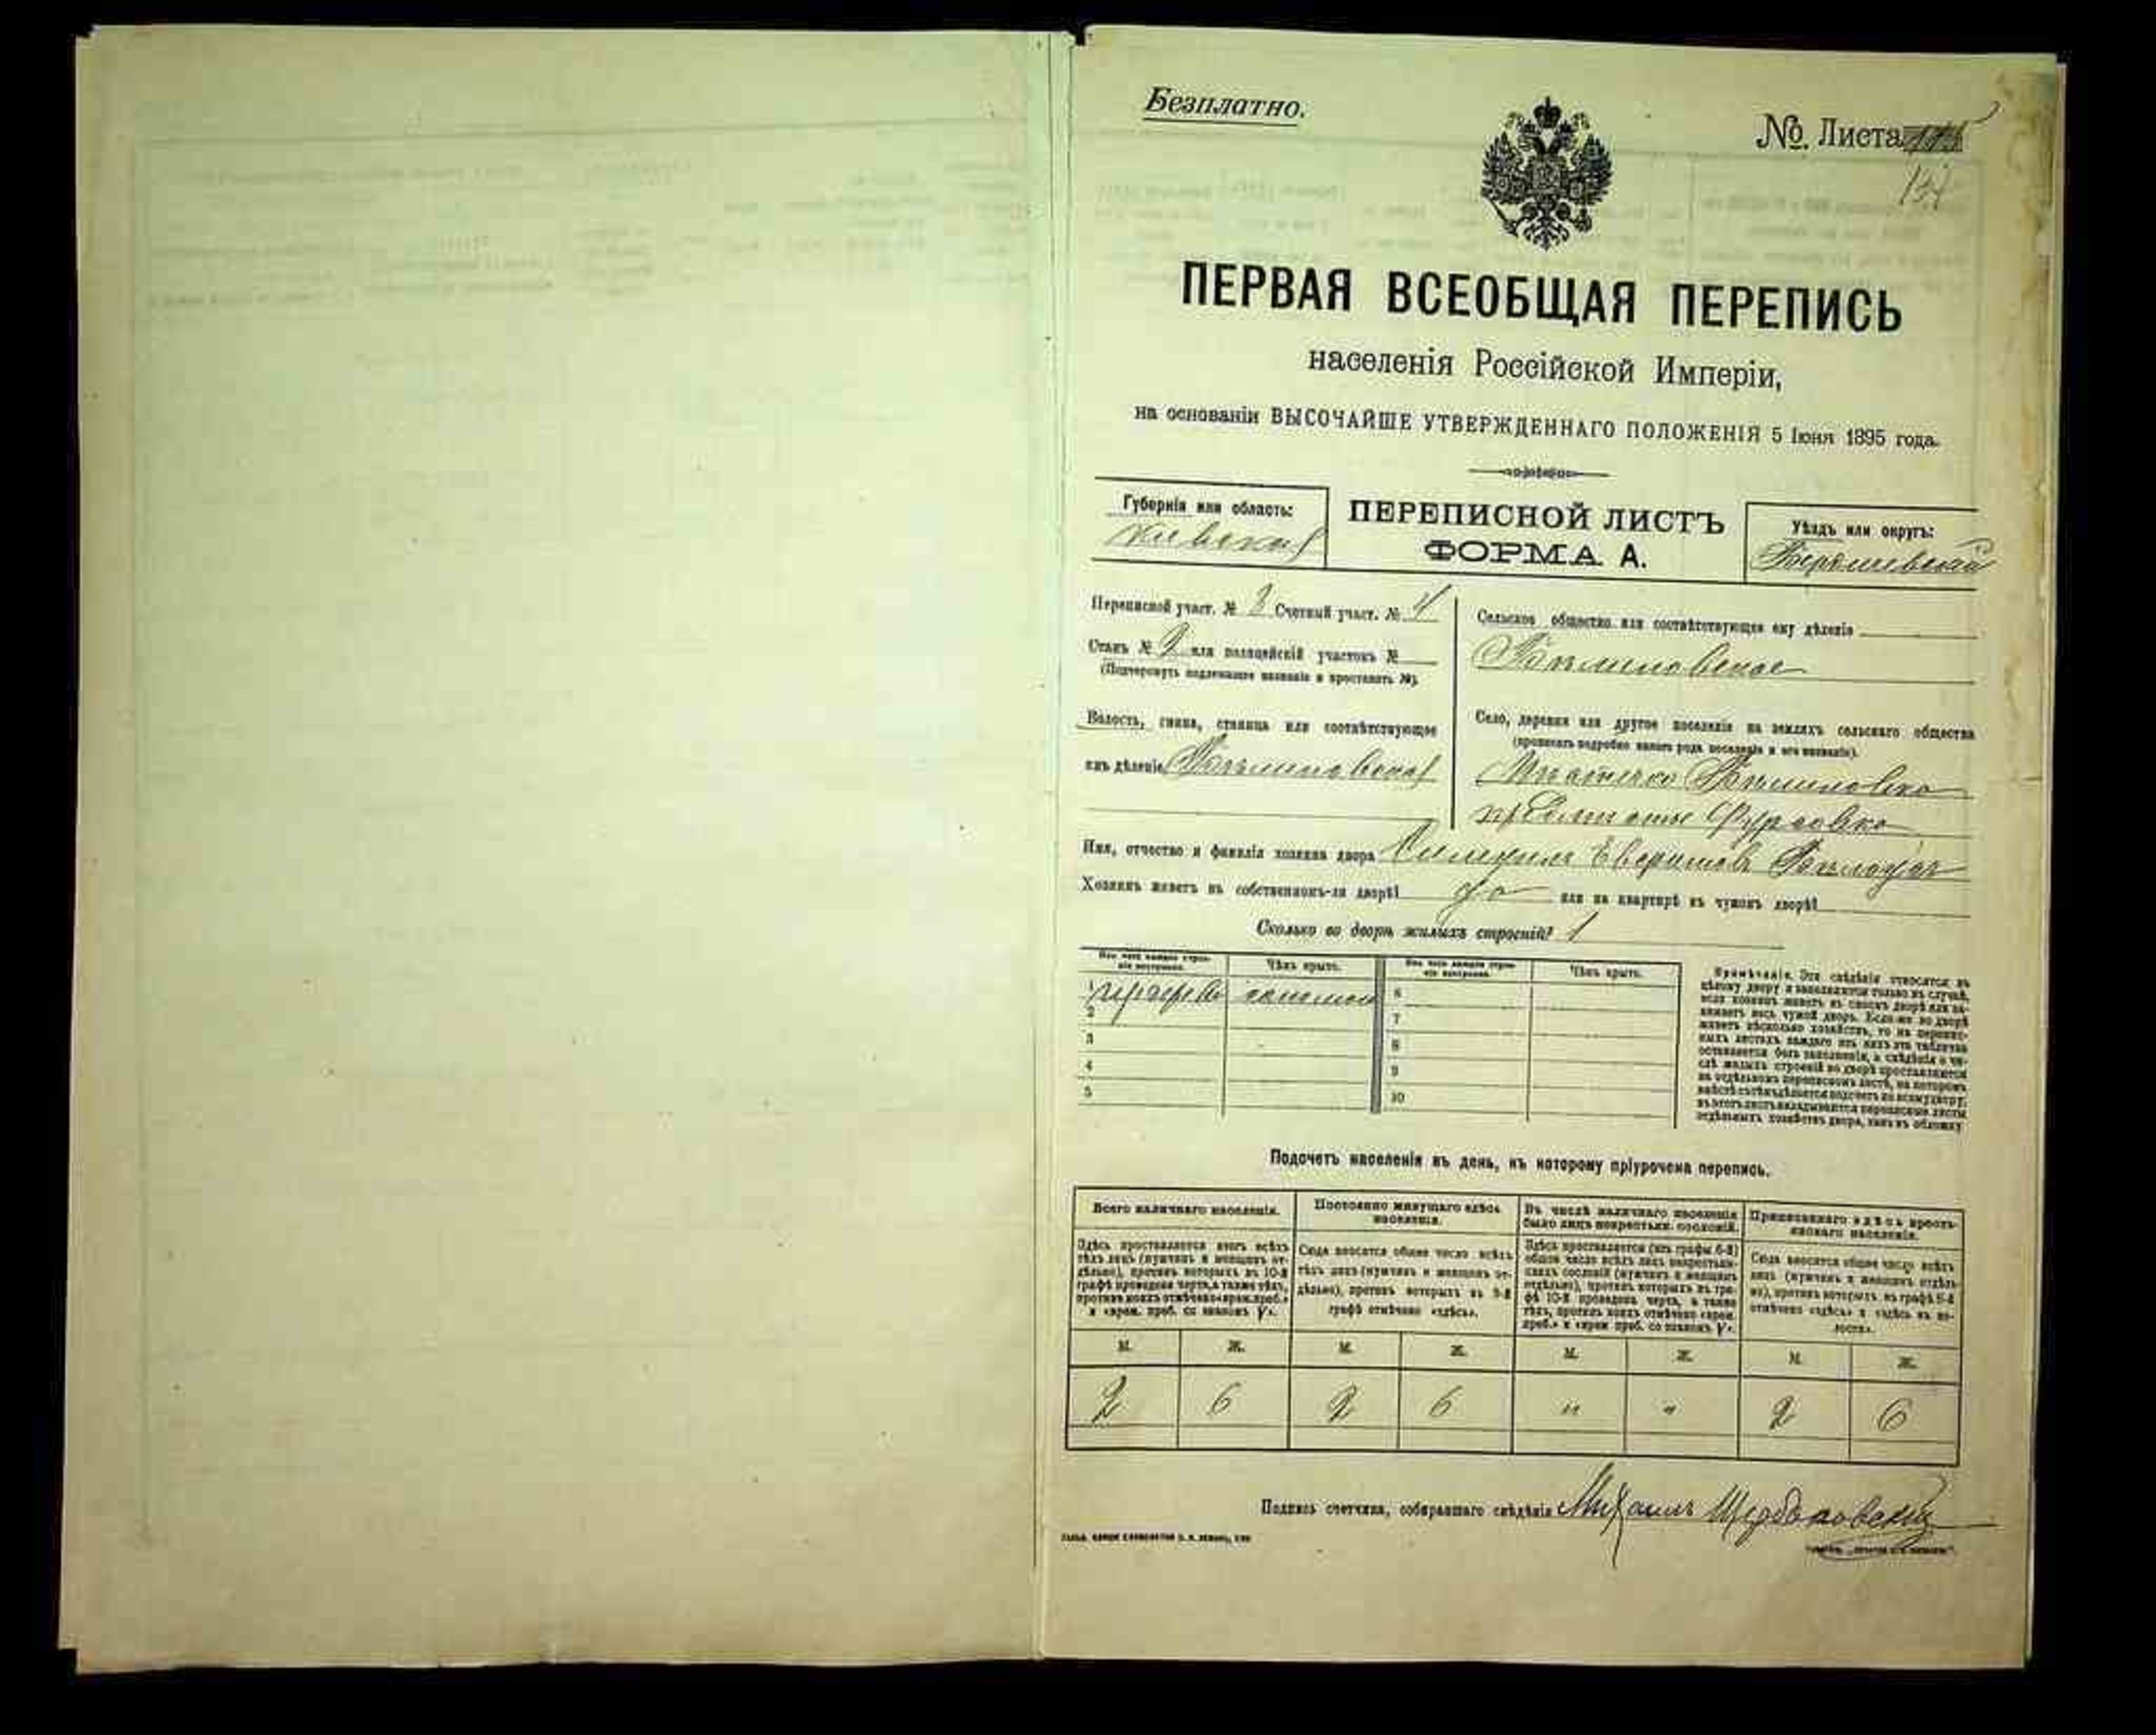 Безплатно.
№ Листа
ПЕРВАЯ ВСЕОБЩАЯ ПЕРЕПИСЬ
населенія Россійской Имперіи,
на основаніи ВЫСОЧАЙШЕ УТВЕРЖДЕННАГО ПОЛОЖЕНІЯ 5 Іюня 1895 года.
Губернія или область:
Кіевская
ПЕРЕПИСНОЙ ЛИСТЪ
ФОРМА А.
Уѣздъ или округъ:
Бердичевскій
Переписной участ. № 3 Счетный участ. № 4
Станъ № 2 или полицейскій участокъ №
(Подчеркнуть надлежащее названіе и проставить №).
Волость, гмина, станица или соотвѣтствующее
имъ дѣленіе
Сельское общество или соотвѣтствующее ему дѣленіе
Село, деревня или другое поселеніе на земляхъ сельскаго общества
(прописать подробно какого рода поселеніе и его названіе).
Мѣстечко
Имя, отчество и фамилія хозяина двора
Хозяинъ живетъ въ собственномъ-ли дворѣ? да или на квартирѣ въ чужомъ дворѣ?
Сколько во дворѣ жилыхъ строеній? 1
Изъ чего каждое строеніе построено. Чѣмъ крыто. Изъ чего каждое строеніе построено. Чѣмъ крыто.
1 6
2 7
3 8
4 9
5 10
Примѣчаніе. Эти свѣдѣнія относятся къ
цѣлому двору и заполняются только въ случаѣ,
если хозяинъ живетъ въ своемъ дворѣ или занимаетъ
весь чужой дворъ. Если-же во дворѣ
живетъ нѣсколько хозяйствъ, то на переписныхъ
листахъ каждаго изъ нихъ эта табличка
оставляется безъ заполненія, а свѣдѣнія о числѣ
жилыхъ строеній во дворѣ проставляются
на отдѣльномъ переписномъ листѣ, на которомъ
вмѣстѣ съ тѣмъ дѣлается подсчетъ по всему двору;
въ этотъ листъ вкладываются переписные листы
отдѣльныхъ хозяйствъ двора, какъ въ обложку
Подсчетъ населенія въ день, къ которому пріурочена перепись.
Всего наличнаго населенія.
Здѣсь проставляется итогъ всѣхъ
тѣхъ лицъ (мужчинъ и женщинъ отдѣльно),
противъ которыхъ въ 10-й
графѣ проведена черта, а также тѣхъ,
противъ коихъ отмѣчено «врем. преб.»
и «врем. преб. со знакомъ V».
Постоянно живущаго здѣсь населенія.
Сюда вносится общее число всѣхъ
тѣхъ лицъ (мужчинъ и женщинъ отдѣльно),
противъ которыхъ въ 9-й
графѣ отмѣчено «здѣсь».
Въ числѣ наличнаго населенія
было лицъ некрестьян. сословій.
Здѣсь проставляется (изъ графы 6-й)
общее число всѣхъ лицъ некрестьянскихъ
сословій (мужчинъ и женщинъ
отдѣльно), противъ которыхъ въ графѣ
10-й проведена черта, а также
тѣхъ, противъ коихъ отмѣчено «врем.
преб.» и «врем. преб. со знакомъ V».
Приписаннаго здѣсь крестьянскаго населенія.
Сюда вносится общее число всѣхъ
лицъ (мужчинъ и женщинъ отдѣльно),
противъ которыхъ въ графѣ 8-й
отмѣчено «здѣсь» и «здѣсь въ волости».
М. Ж. М. Ж. М. Ж. М. Ж.
2 6 2 6 " " 2 6
Подпись счетчика, собиравшаго свѣдѣнія Михаилъ